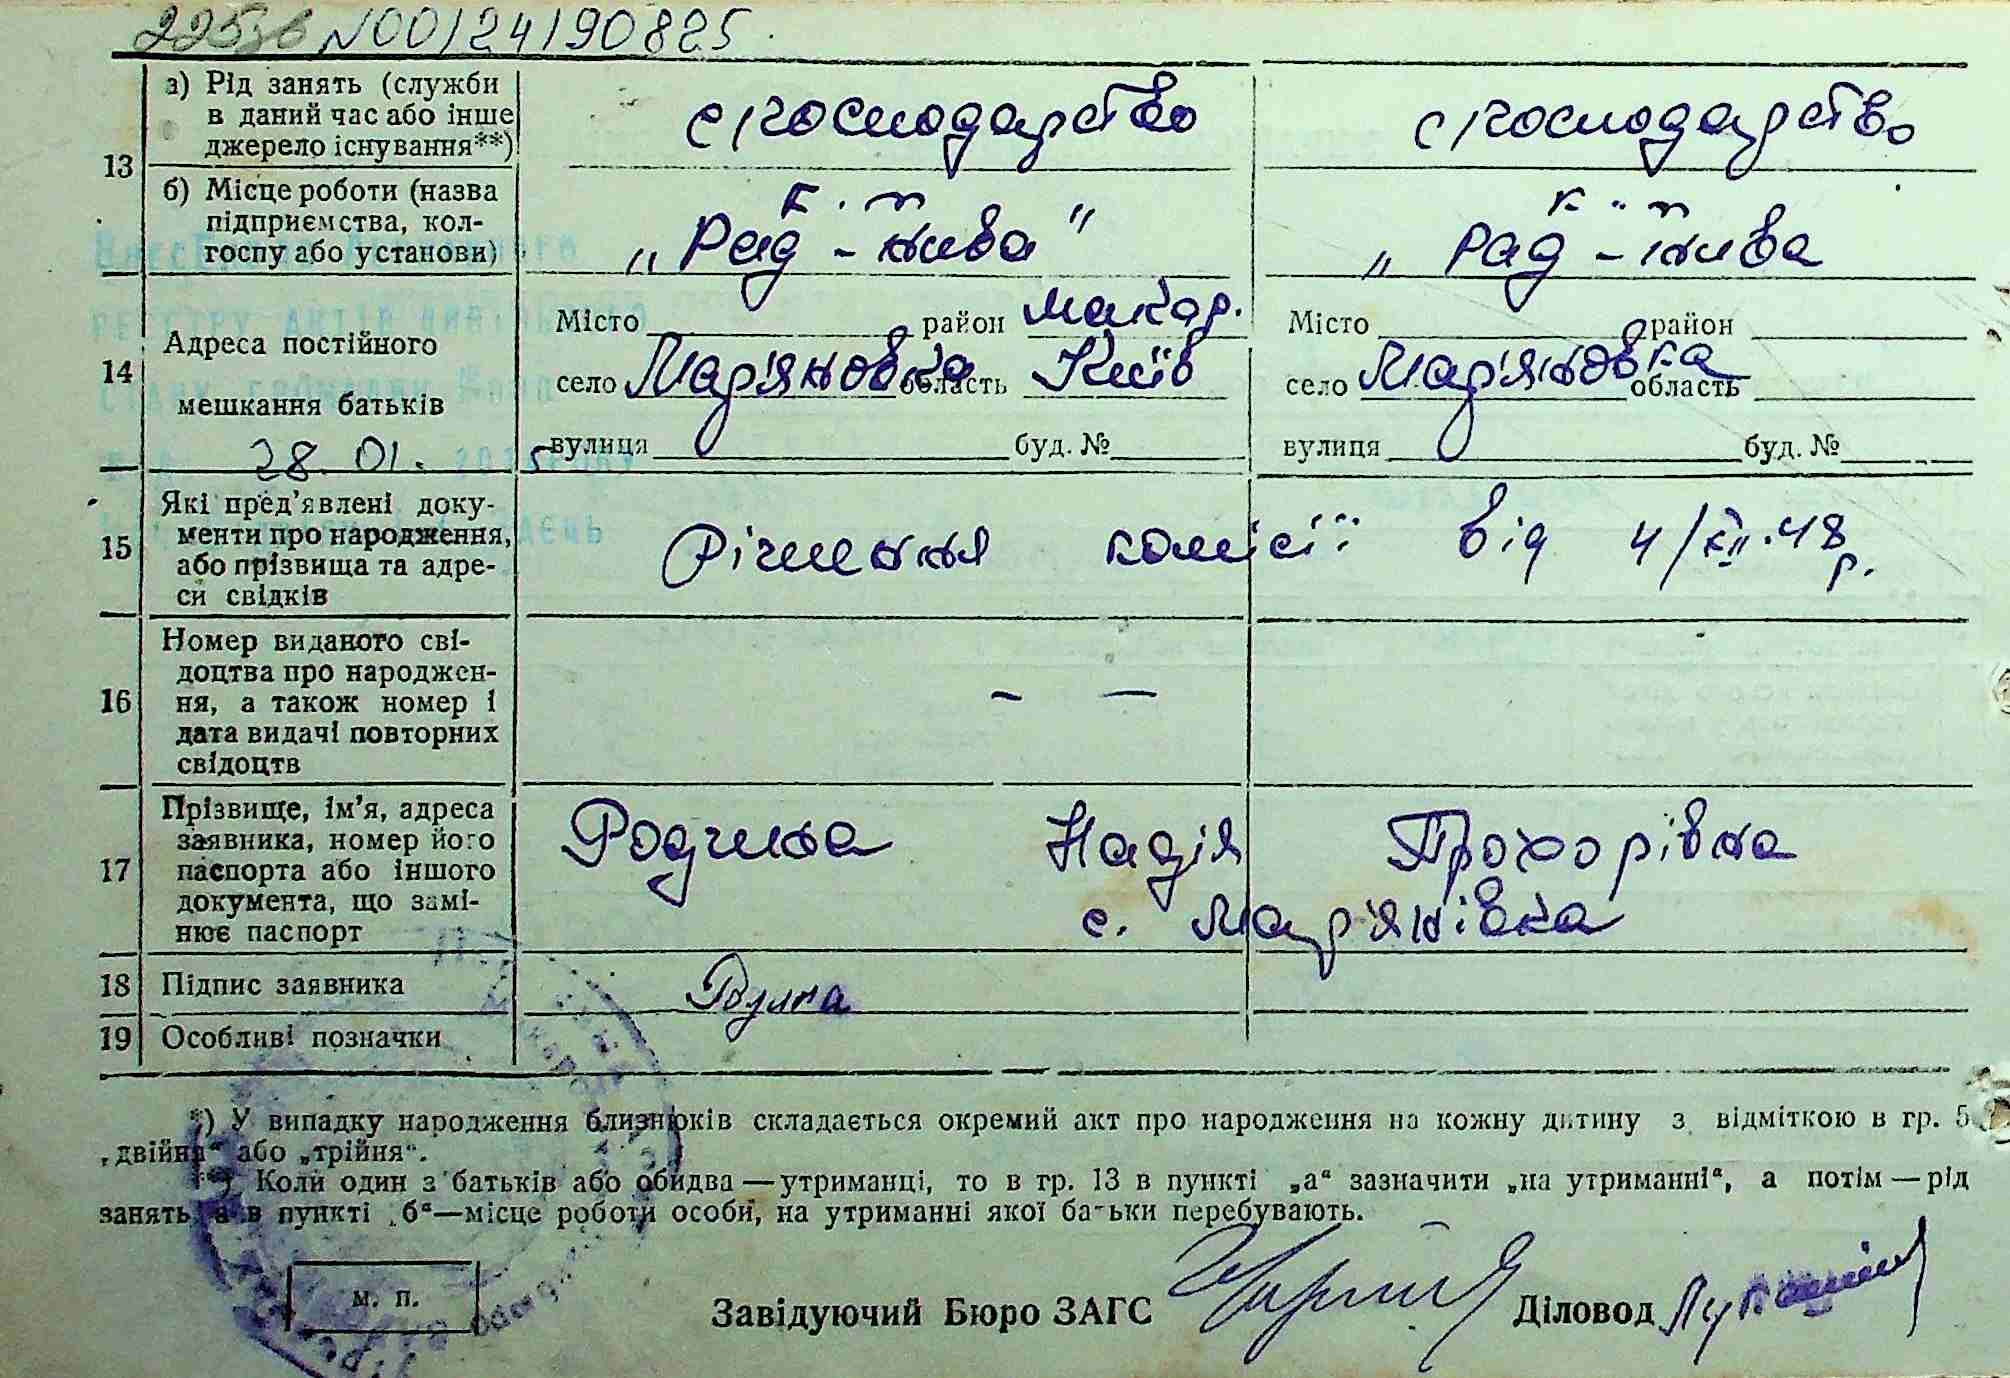 N00124190825
а) Рід занять (служби
в даний час або інше
джерело існування**)
с/господарство
с/господарство
13
б) Місце роботи (назва
підприємства, кол-
госпу або установи)
к. п
„Рад - нива"
к. п
„Рад - нива
14
Адреса постійного
мешкання батьків
28. 01.
Місто район Макар.
село Мар'яновка область Київ
вулиця буд. №
Місто район
село Мар'яновка область
вулиця буд. №
15
Які пред'явлені доку-
менти про народження,
або прізвища та адре-
си свідків
Рішення комісії від 4/XII.48 р.
16
Номер виданого сві-
доцтва про народжен-
ня, а також номер і
дата видачі повторних
свідоцтв
– —
17
Прізвище, ім'я, адреса
заявника, номер його
паспорта або іншого
документа, що замі-
нює паспорт
Родчина Надія Прохорівна
с. Мар'янівка
18 Підпис заявника
19 Особливі позначки
*) У випадку народження близнюків складається окремий акт про народження на кожну дитину з відміткою в гр. 5
„двійня" або „трійня".
**) Коли один з батьків або обидва — утриманці, то в гр. 13 в пункті „а" зазначити „на утриманні", а потім — рід
занять, а в пункті „б"—місце роботи особи, на утриманні якої батьки перебувають.
м. п.
Завідуючий Бюро ЗАГС
Діловод